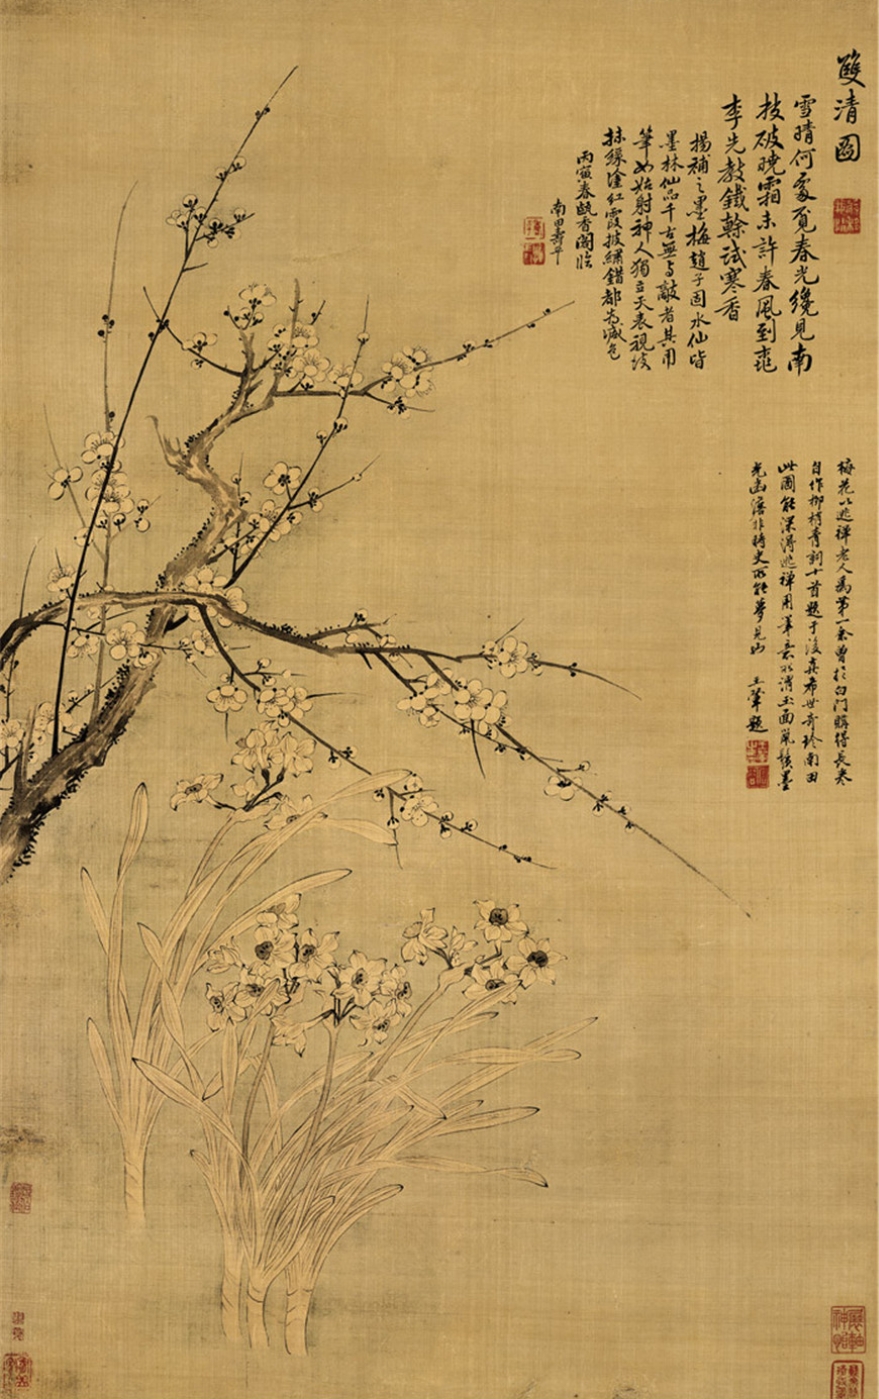 雙清圖
雪晴何處覓春光纔見南
枝破曉霜未許春風到桃
李先教鐵榦試寒香
楊補之墨梅趙子固水仙皆
墨林仙品千古無與敵者其用
筆如姑射神人獨立天表視後
抹綠塗紅霞披繡錯都為減色
丙寅春甌香閣臨
南田壽平
梅花以逃禪老人為第一余曾於白門購得長卷
自作柳梢青詞十首題于後真希世奇珍南田
此圖能深得逃禪用筆意冰清玉面氣韻墨
光幽澹非時史所能夢見也 王翬題